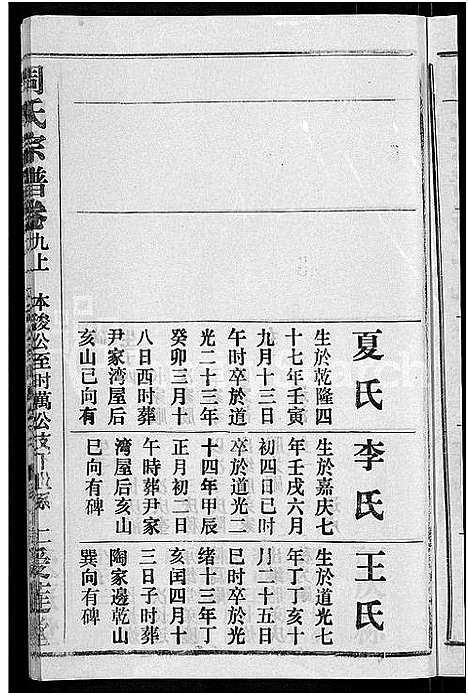 夏氏
生於乾隆四
十七年壬寅
九月十三日
午时卒於道
光二十三年
癸卯三月十
八日酉时葬
尹家湾屋后
亥山巳向有
李氏
生於嘉庆七
年壬戌六月
初四日巳时
卒於道光二
十四年甲辰
正月初二日
午時葬尹家
湾屋后亥山
巳向有碑
王氏
生於道光七
年丁丁亥十
月二十五日
巳时卒於光
绪十三年丁
亥闰四月十
三日子时葬
陶家邊乾山
巽向有碑
周氏宗譜卷九上 本浚公至时萬公枝下